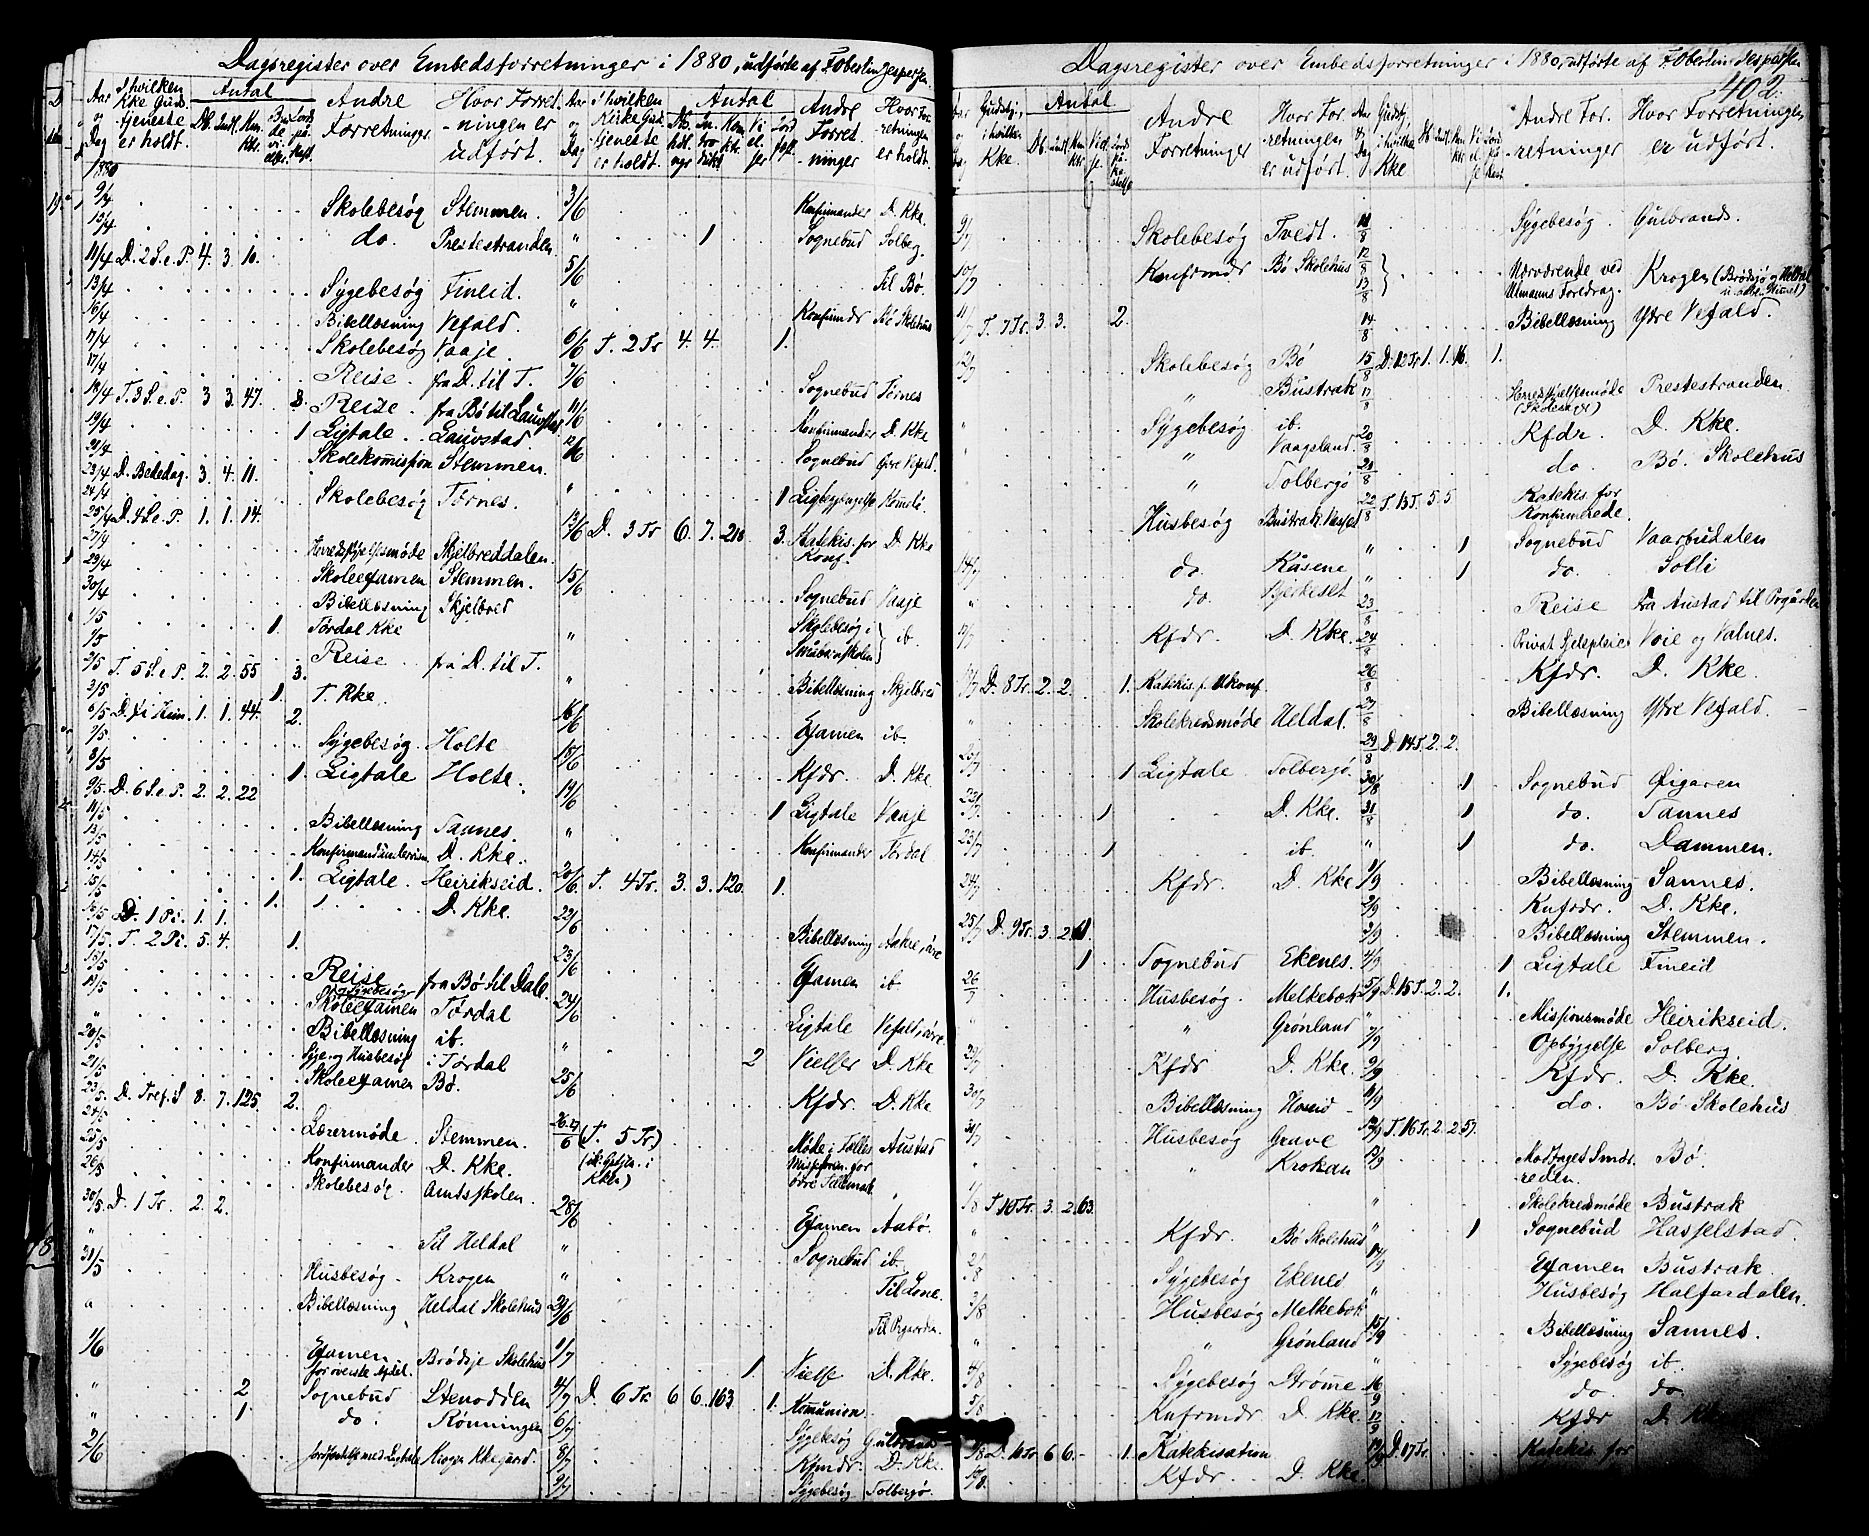 Dagsregister over Embedsforretninger i 1880, udførte af F. Oberlin Jespersen
Aar og Dag I hvilken Kke Gudstjeneste er holdt. Antal Andre Forretninger Hvor Forretningen er udført.
1880
9/4 Skolebesøg Stemmen.
do. Prestestranden
11/4 D. 2 S. e. P. 4. 3. 10.
13/4 Sygebesøg Fineid.
16/4 Bibellæsning Vefald.
17/4 Skolebesøg Vaaje.
17/4 Reise fra D. til T.
18/4 T. 3 S. e. P. 3 3. 47. 8. Reise fra Bø til Lauvstad
19/4 1 Ligtale Lauvstad
21/4 Skolekommission Stemmen.
23/4 D. Bededag. 3. 4. 11.
24/4 Skolebesøg Tørnes.
25/4 D. 4 S. e. P. 1. 1. 14.
27/4 Herredsstyrelsesmøde Skjelbreddalen.
29/4 Skoleexamen Stemmen.
30/4 Bibellæsning Skjelbred
1/5 1. Tørdal Kke
1/5 Reise fra D. til T.
2/5 T. 5 S. e. P. 2. 2. 55 3.
3/5 1. T. Kke.
6/5 D. Xi Him. 1. 1. 44. 2.
7/5 Sygebesøg. Holte
8/5 1. Ligtale Holte.
9/5 D. 6 S. e. P. 2. 2. 22
11/5 Bibellæsning Sannes.
13/5 D. Kke.
14/5 1. Ligtale Heirikseid.
15/5 1. D. Kke.
16/5 D. 1 Pi. 1. 1.
17/5 T. 2 Pi. 5. 4. 1.
Reise fra Bø til Dale
Skoleexamen Tørdal
20/5 Bibellæsning ib.
21/5 Syge og Husbesøg i Tørdal
Skoleexamen Bø.
23/5 D. Tref. S 8. 7. 125. 2.
24/5 Lærermøde Stemmen.
25/5 Konfirmander D. Kke.
26/5 Skolebesøg. Amtsskolen.
30/5 D. 1 Tr. 2. 2.
" Til Heldal
31/5 Husbesøg Krogen
" Bibellæsning Heldal Skolehus
1/6 Examen Brødsje Skolehus
" 2 Sognebud Stenodden
" 1 do. Rønningen
2/6
Aar og Dag I hvilken Kirke Gudstjeneste er holdt. Antal Andre Forretninger Hvor Forretningen er holdt.
3/6 Konfirmander D. Kke.
" 1 Sognebud Solberg.
5/6 Til Bø.
" Konfirmdr Bø Skolehus
6/6 T. 2 Tr 4. 4. 1.
7/6 Sognebud Tørnes
11/6 Konfirmander D. Kke
12/6 Sognebud Øvre Vefald.
" 1
13/6 D. 3 Tr 6. 7. 210 3. Katekis. for Konf. D. Kke
15/6 Sognebud Vaaje
" Skolebesøg i ib.
" Bibellæsning Skjelbred
16/6 Examen ib.
18/6 Kfdr. D. Kke.
19/6 1 Ligtale Vaaje
" Konfirmander Tørdal
20/6 T. 4 Tr. 3. 3. 120. 1.
22/6 Bibellæsning
23/6 Examen ib
24/6 Ligtale
" 2 Vielser D. Kke
25/6 Kfdr. D. Kke
26.27/6 (T. 5 Tr) Møde i Fælles Austad
28/6 Examen Aabø.
" Sognebud ib.
" Til Lone.
29/6
1/7 1 Vielse D. Kke.
4/7 D. 6 Tr. 6 6. 163 1. Kommunion.
6/7 Sygebesøg
8/7 Kfmdr. D. Kke.
9/7 Sygebesøg Tolbergø.
Dagsregister over Embedsforretninger i 1880, udførte af F. Oberlin Jespersen
402.
Gudstj. i hvilken Kke. Antal Andre Forretninger Hvor Forretningen er udført.
9/7 Skolebesøg Tvedt.
10/7 Konfirmdr Bø Skolehus
11/7 T. 7 Tr. 3. 3. 2.
12/7 Skolebesøg Bø
" Bustrak
" Sygebesøg ib.
" Vaagsland.
" Tolbergø
Husbesøg
14/7 do. Kåsene
" do. Bjerkeset
Kfdr. D. Kke.
D. 8 Tr. 2. 2. 1.
" Skolekredsmøde Heldal.
1 Ligtale Tolbergø.
23/7 1 D. Kke.
23/7 1 ib.
24/7 Kfdr. D. Kke
25/7 D. 9 Tr. 3. 2.
1 Sognebud Ekenes.
26/7 Husbesøg. Melkebok
" Grønland
29/7 Kfdr D. Kke.
30/7 Bibellæsning
31/7 Husbesøg Grave
" Krokan
1/8 T 10 Tr. 3. 2. 63.
" Kfdr. Bø Skolehus
2/8 Sygebesøg Ekenes
3/8 Husbesøg Melkebok
" Grønland
4/8 Sygebesøg Strøme
5/8 Knfrmdr D. Kke.
8/8 D. 11 Tr 6 6. 1. Katekisation
Kfdr. D. Kke.
Aar og Dag Gudstj. i hvilken Kke Andre Forretninger Hvor Forretningen er udført.
Sygebesøg Gulbrands.
12/8 13/8 Nærværende ved Ulmanns Foredrag.
14/8 Bibellæsning Ydre Vefald.
15/8 D. 12 Tr 1. 1. 16. 1.
17/8 Herredsstyrelsesmøde Prestestranden.
20/8 Kfdr. D. Kke.
21/8 do. Bø. Skolehus
22/8 T. 13 T. 5. 5 Katekis. for Konfirmerede.
" 1 Sognebud Vaarbudalen
" 1 do. Solli
23/8 Reise Fra Austad til Prgården
24/8 Privat Sjelepleie Voie og Valnes.
26/8 Kfdr. D. Kke.
27/8 Bibellæsning Ydre Vefald.
29/8 D. 14 T. 2. 2.
30/8 1 Sognebud Øigaren
31/8 1 do. Sannes
" 1 do. Dammen.
1/9 Bibellæsning Sannes.
2/9 D. Kke.
3/9 Bibellæsning Stemmen.
4/9 1 Ligtale Fineid
5/9 D. 15 T. 2. 2. 1.
" Missionsmøde Heirikseid.
7/9 Opbyggelse Solberg.
9/9 Kfdr. D. Kke.
11/9 do. Bø Skolehus
12/9 T. 16 Tr. 2. 2. 57.
13/9 Bø.
" Skolekredsmøde Bustrak
" 1 Sognebud Hasselstad.
14/9 Examen Bustrak.
" Husbesøg Halfardalen.
15/9 Bibellæsning Sannes.
" Sygebesøg ib.
16/9 do. do.
17/9 Kfdr D. Kke
19/9 D. 17 Tr. Katekis. for